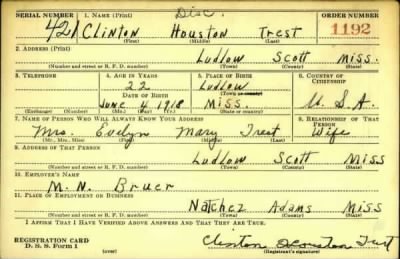 Disc.
SERIAL NUMBER 1. NAME (Print) ORDER NUMBER
421 Clinton Houston Trest 1192
(First) (Middle) (Last)
2. ADDRESS (Print)
Ludlow Scott Miss.
(Number and street or R. F. D. number) (Town) (County) (State)
3. TELEPHONE 4. AGE IN YEARS 5. PLACE OF BIRTH 6. COUNTRY OF CITIZENSHIP
22 Ludlow
DATE OF BIRTH (Town or county)
June 4 1918 Miss. U. S. A.
(Exchange) (Number) (Mo.) (Day) (Yr.) (State or country)
7. NAME OF PERSON WHO WILL ALWAYS KNOW YOUR ADDRESS 8. RELATIONSHIP OF THAT PERSON
Mrs. Evelyn Mary Trest Wife
(Mr., Mrs., Miss) (First) (Middle) (Last)
9. ADDRESS OF THAT PERSON
Ludlow Scott Miss
(Number and street or R. F. D. number) (Town) (County) (State)
10. EMPLOYER'S NAME
M. N. Bruer
11. PLACE OF EMPLOYMENT OR BUSINESS
Natchez Adams Miss
(Number and street or R. F. D. number) (Town) (County) (State)
I AFFIRM THAT I HAVE VERIFIED ABOVE ANSWERS AND THAT THEY ARE TRUE.
REGISTRATION CARD
D. S. S. Form 1 (over) Clinton Houston Trest
(Registrant's signature)